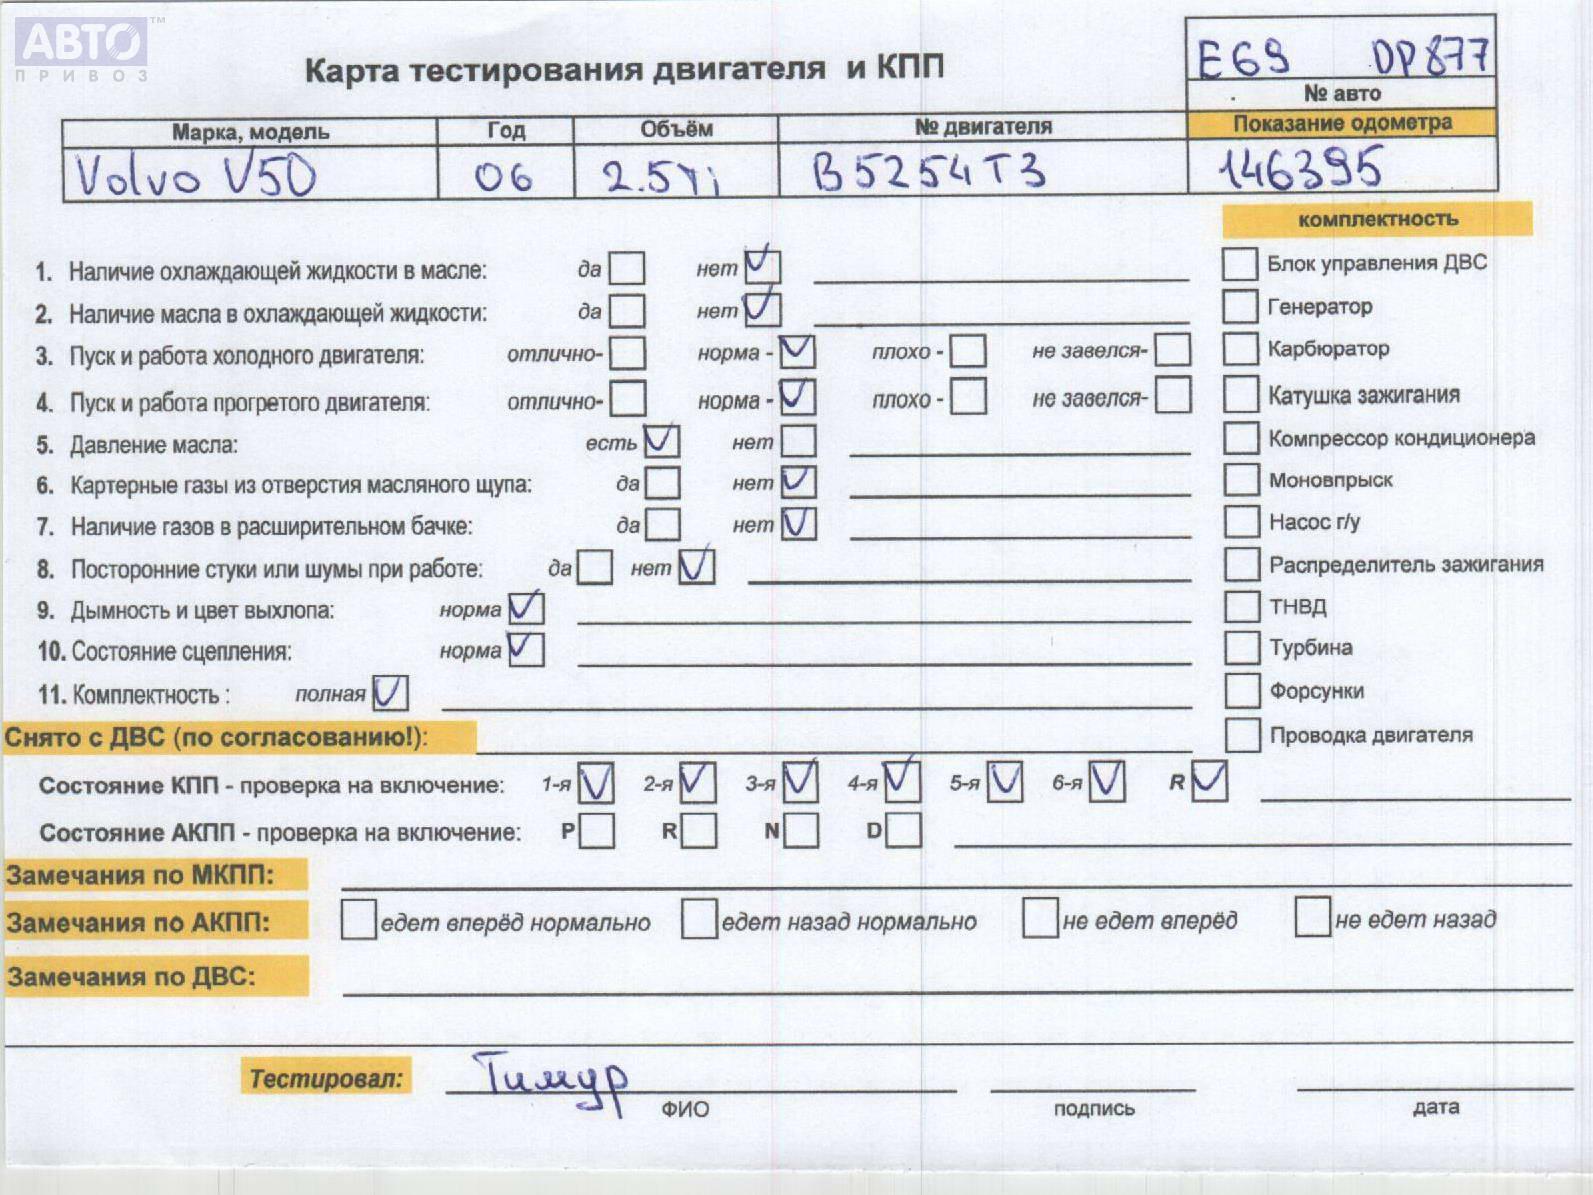 АВТО™
ПРИВОЗ
E69 DP877
Карта тестирования двигателя и КПП
№ авто
Марка, модель Год Объём № двигателя Показание одометра
Volvo V50 06 2.5Ti B5254T3 146395
комплектность
1. Наличие охлаждающей жидкости в масле: да нет
Блок управления ДВС
2. Наличие масла в охлаждающей жидкости: да нет
Генератор
3. Пуск и работа холодного двигателя: отлично- норма - плохо - не завелся-
Карбюратор
4. Пуск и работа прогретого двигателя: отлично- норма - плохо - не завелся-
Катушка зажигания
5. Давление масла: есть нет
Компрессор кондиционера
6. Картерные газы из отверстия масляного щупа: да нет
Моновпрыск
7. Наличие газов в расширительном бачке: да нет
Насос г/у
8. Посторонние стуки или шумы при работе: да нет
Распределитель зажигания
9. Дымность и цвет выхлопа: норма
ТНВД
10. Состояние сцепления: норма
Турбина
11. Комплектность : полная
Форсунки
Снято с ДВС (по согласованию!):
Проводка двигателя
Состояние КПП - проверка на включение: 1-я 2-я 3-я 4-я 5-я 6-я R
Состояние АКПП - проверка на включение: P R N D
Замечания по МКПП:
Замечания по АКПП: едет вперёд нормально едет назад нормально не едет вперёд не едет назад
Замечания по ДВС:
Тестировал: Тимур
ФИО подпись дата